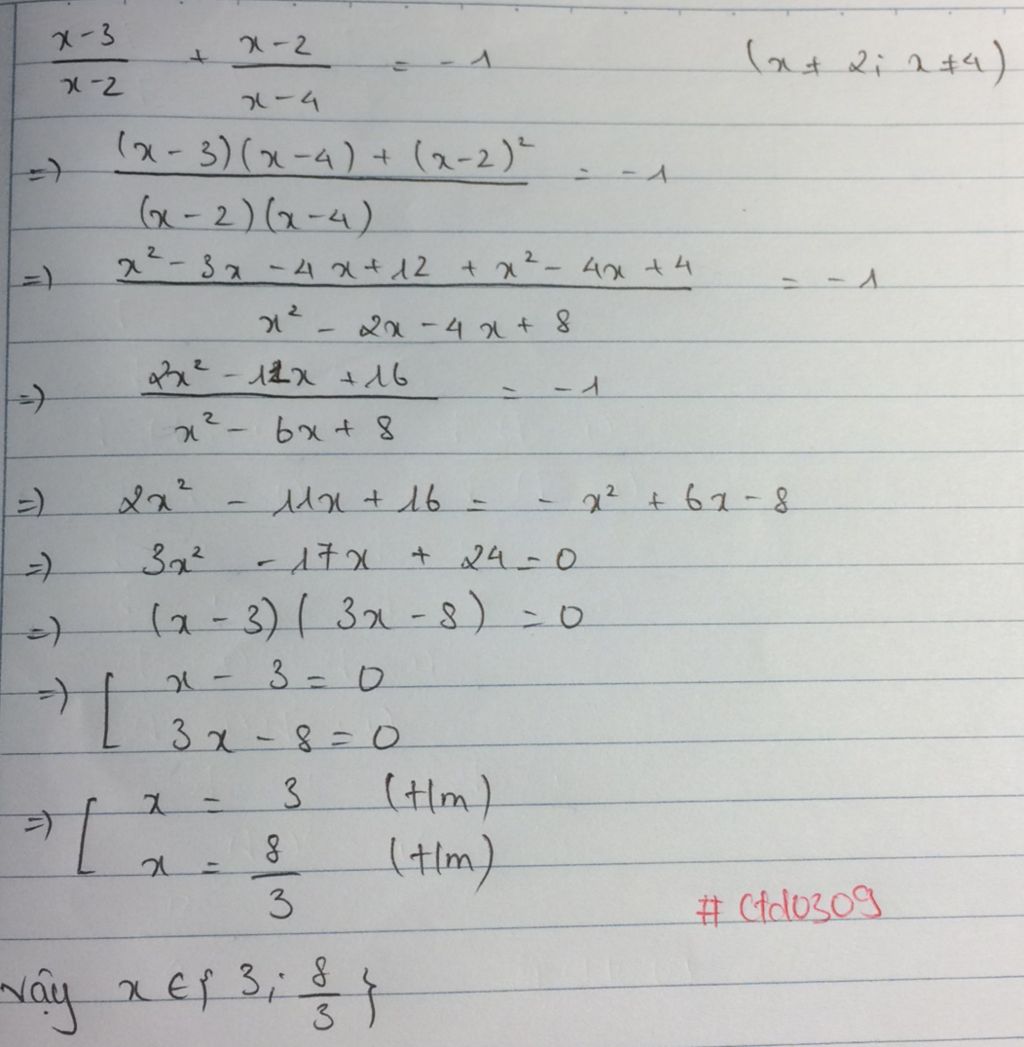 x-3/x-2 + x-2/x-4 = -1 (x ≠ 2; x ≠ 4)
=> (x-3)(x-4) + (x-2)²/(x-2)(x-4) = -1
=> x² - 3x - 4x + 12 + x² - 4x + 4/x² - 2x - 4x + 8 = -1
=> 2x² - 11x + 16/x² - 6x + 8 = -1
=> 2x² - 11x + 16 = - x² + 6x - 8
=> 3x² - 17x + 24 = 0
=> (x - 3)(3x - 8) = 0
=> [ x - 3 = 0
3x - 8 = 0
=> [ x = 3 (t/m)
x = 8/3 (t/m)
# Ctd0309
Vậy x ∈ { 3; 8/3 }